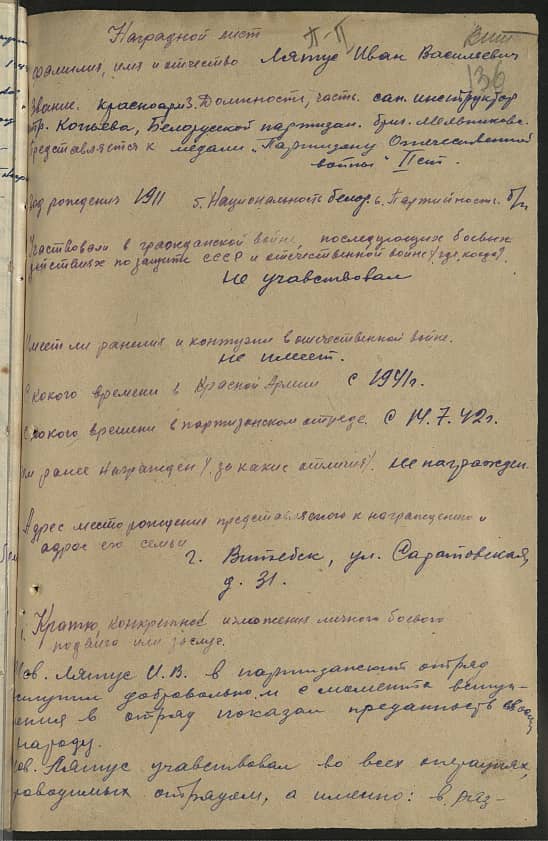 Наградной лист
П-П
136
Фамилия, имя и отчество Ляпус Иван Василевич
Звание. красноарм. 3. Должность, часть. сан. инструктор
отр. Копьева, Белорусской партизан. бриг. Мельникова.
Представляется к медали „Партизану Отечественной
войны" II ст.
Год рождения 1911 5. Национальность белор. 6. Партийность. б/п
Участвовали в гражданской войне, последующих боевых
действиях по защите СССР и отечественной войне /где, когда/.
не учавствовал
Имеет ли ранения и контузии в отечественной войне.
не имеет.
С какого времени в Красной Армии с 1941г.
С какого времени в партизанском отряде. с 14.7.42г.
ли ранее награжден / за какие отличия /. не награжден.
Адрес место рождения представляемого к награждению и
адрес его семьи
г. Витебск, ул. Саратовская,
д. 31.
Кратко, конкретное изложения личного боевого
подвига или заслуг.
Тов. Ляпус И.В. в партизанский отряд
вступил добровольно и с момента вступ-
ления в отряд показал преданность своему
народу.
Тов. Ляпус учавствовал во всех операциях,
проводимых отрядем, а именно: в раз-